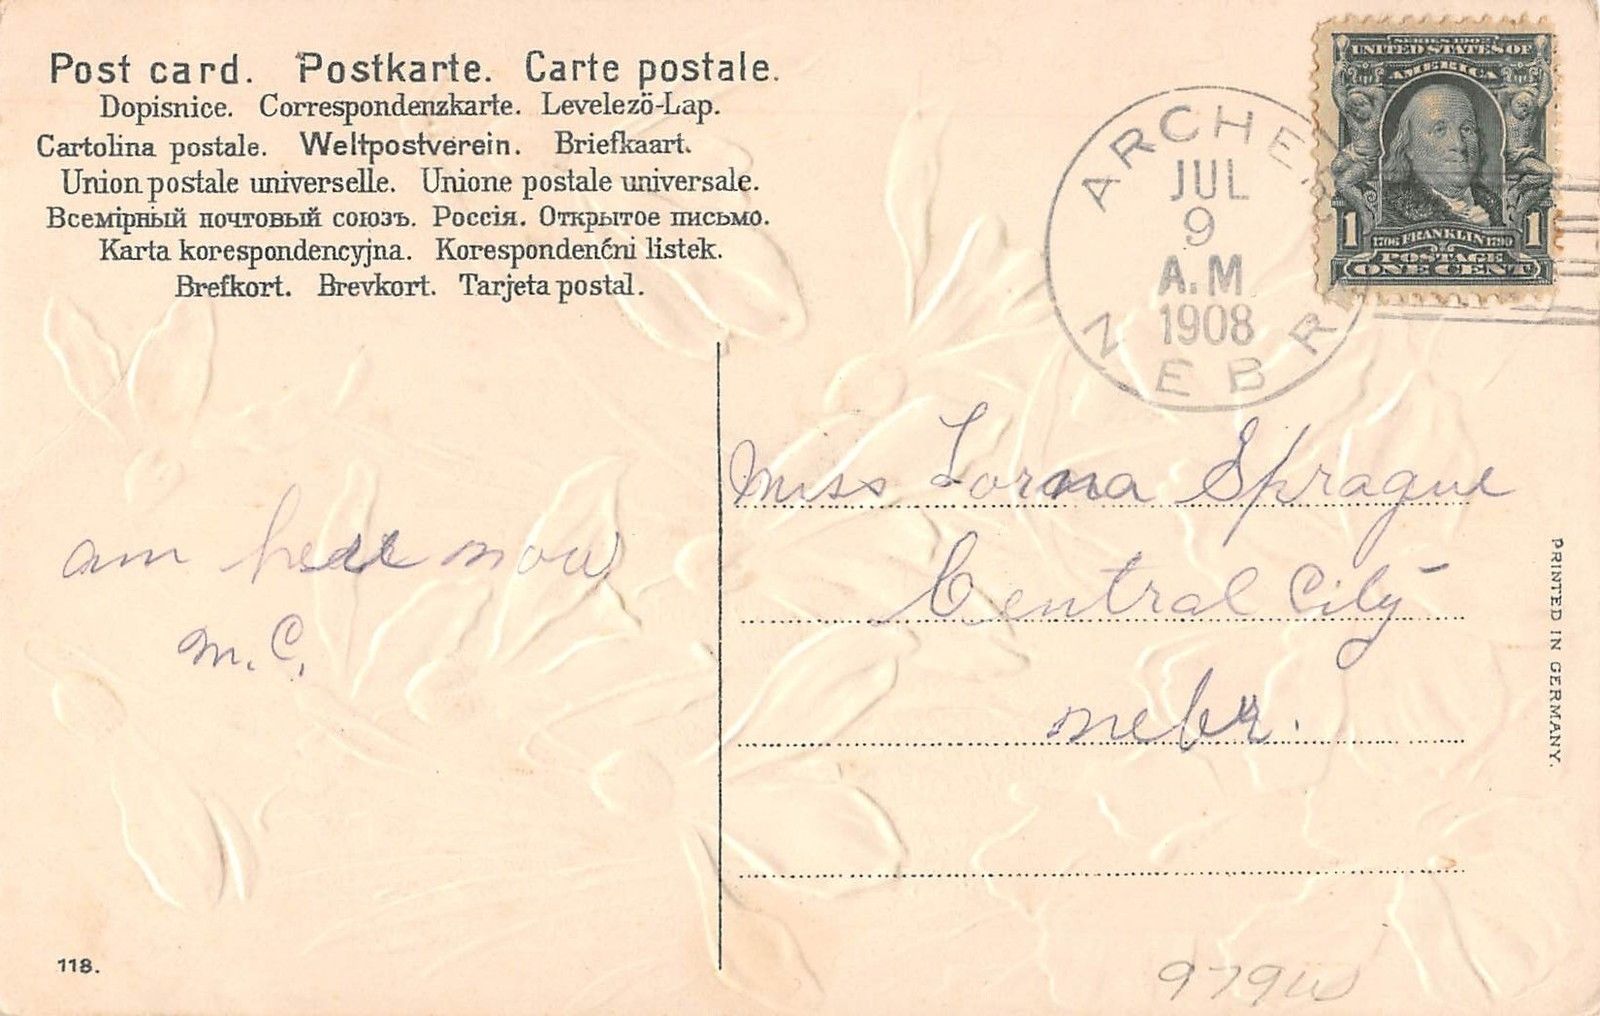 Post card. Postkarte. Carte postale.
Dopisnice. Correspondenzkarte. Levelezö-Lap.
Cartolina postale. Weltpostverein. Briefkaart.
Union postale universelle. Unione postale universale.
Всемірный почтовый союзъ. Россія. Открытое письмо.
Karta korespondencyjna. Korespondenćni listek.
Brefkort. Brevkort. Tarjeta postal.
ARCHER
JUL
9
A.M
1908
NEBR
SERIES 1902
UNITED STATES OF
AMERICA
1 1706 FRANKLIN 1790 1
POSTAGE
ONE CENT
am here now
M. C.
Miss Lorna Sprague
Central City
Nebr.
PRINTED IN GERMANY.
118.
979w